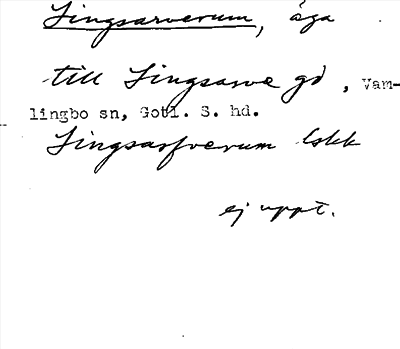 Singsarverum, äga
till Singsarve gd, Vam-
lingbo sn, Gotl. S. hd.
Singsarfverum lskk
ej uppt.